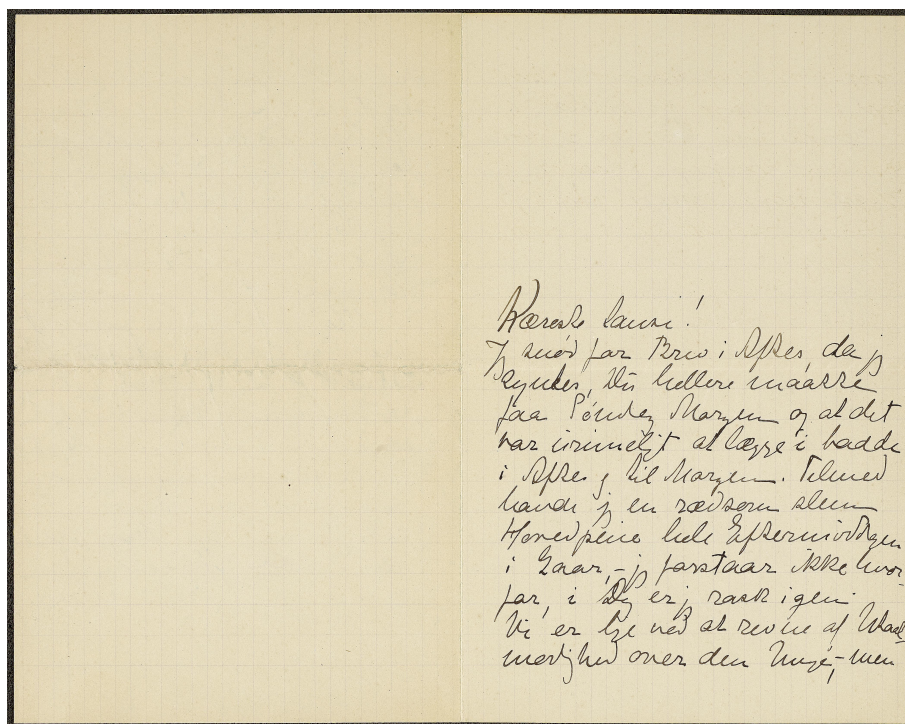 Kæreste Lausi!
Jeg snød for Brev i Aftes, da jeg
syntes, Du hellere maatte
faa Søndag Morgen og at det
var urimeligt at lægge i baade
i Aftes og til Morgen. Tilmed
havde jeg en rædsom slem
Hovedpine hele Eftermiddagen
i Gaar, – jeg forstaar ikke hvor-
for, i Dag er jeg rask igen.
Vi er lige ved at revne af Utaal-
modighed over den Unge, – men